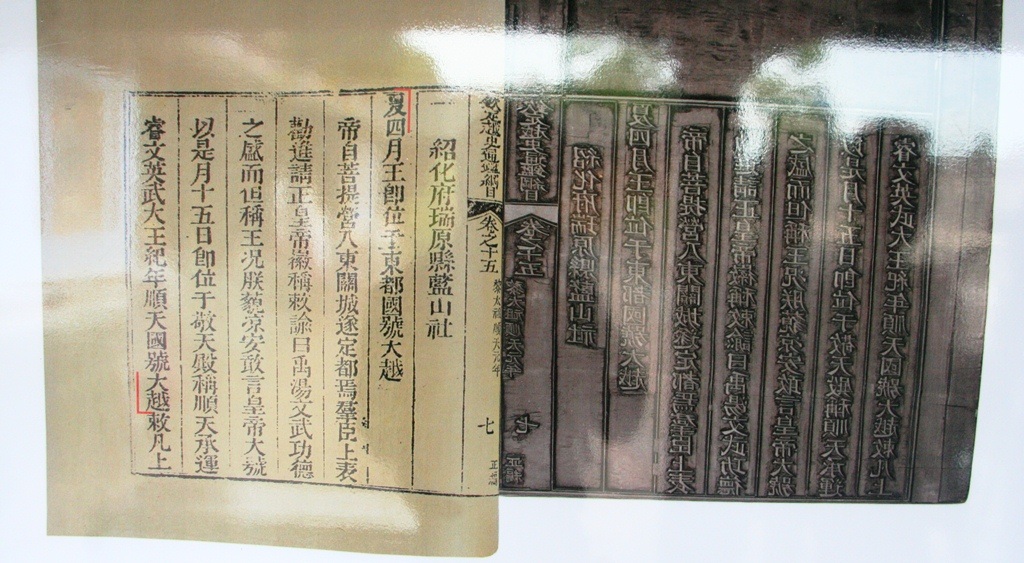 欽定越史通鑑綱目 卷之十五 黎太祖順天元年 七 正編
紹化府瑞原縣藍山社
夏四月王卽位于東都國號大越
帝自菩提營入東關城遂定都焉羣臣上表
勸進請正皇帝徽稱敕諭曰禹湯文武功德
之盛而但稱王况朕藐涼安敢言皇帝大號
以是月十五日卽位于敬天殿稱順天承運
睿文英武大王紀年順天國號大越敕凡上
欽定越史通鑑綱目 卷之十五 黎太祖順天元年 七 正編
紹化府瑞原縣藍山社
夏四月王卽位于東都國號大越
帝自菩提營入東關城遂定都焉羣臣上表
進請正皇帝徽稱敕諭曰禹湯文武功德
之盛而但稱王况朕藐涼安敢言皇帝大號
以是月十五日卽位于敬天殿稱順天承運
睿文英武大王紀年順天國號大越敕凡上